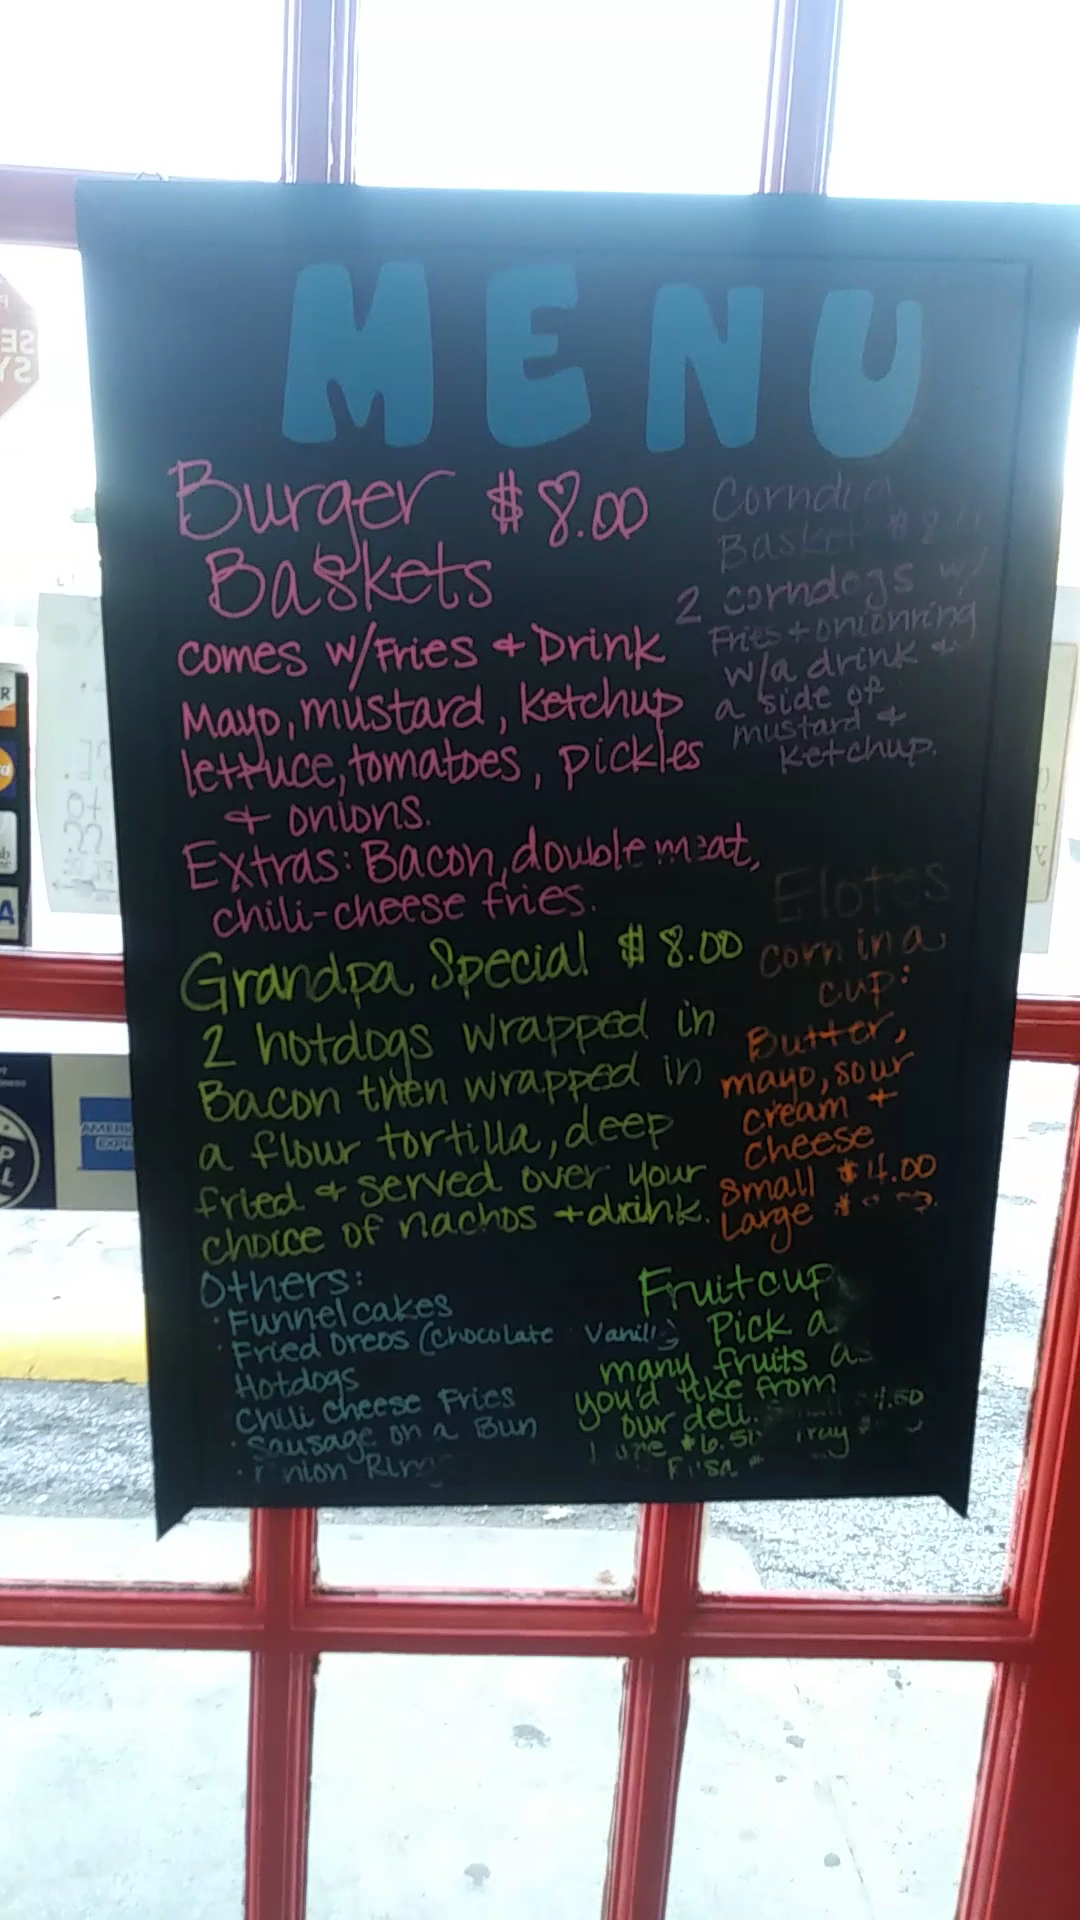 MENU
Burger $8.00
Baskets
comes w/Fries + Drink
Mayo, mustard, ketchup
lettuce, tomatoes, pickles
+ onions.
Extras: Bacon, double meat,
chili-cheese fries.
Corndog
Basket $8
2 corndogs w/
Fries + onionring
w/a drink +
a side of
mustard +
ketchup.
Grandpa Special $8.00
2 hotdogs wrapped in
Bacon then wrapped in
a flour tortilla, deep
fried + served over your
choice of nachos + drink.
Elotes
corn in a
cup:
Butter,
mayo, sour
cream +
cheese
small $4.00
Large $
Others:
· Funnel cakes
· Fried Oreos (chocolate Vanilla)
Hotdogs
Chili Cheese Fries
· Sausage on a Bun
· Onion Rings
Fruit cup
Pick a
many fruits as
you'd like from
our deli. 4.50
$6.50 Tray
AMERICAN
EXPRESS